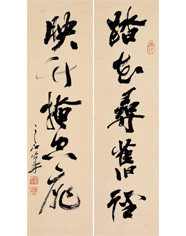 踏花尋舊徑
映竹掩空扉